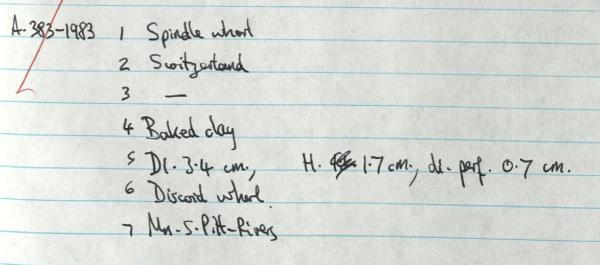 A.383-1983 1 Spindle whorl
2 Switzerland
3 —
4 Baked clay
5 Di. 3.4 cm, H. 1.7 cm, di. perf. 0.7 cm.
6 Discoid whorl.
7 Mn-S-Pitt-Rivers